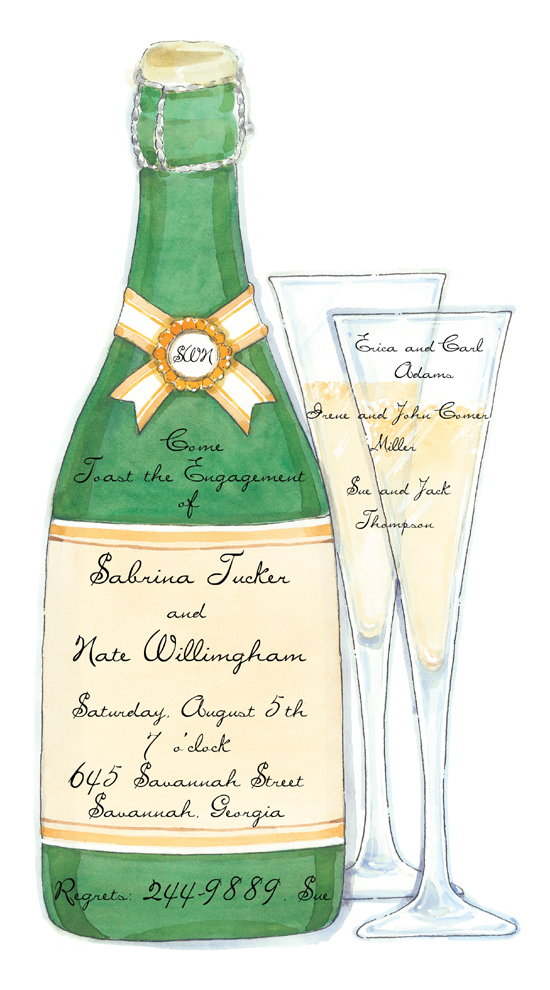 SWN
Come
Toast the Engagement
of
Sabrina Tucker
and
Nate Willimgham
Saturday, August 5th
7 o'clock
645 Savannah Street
Savannah, Georgia
Regrets: 244-9889, Sue
Erica and Carl
Adams
Irene and John Comer
Miller
Sue and Jack
Thompson